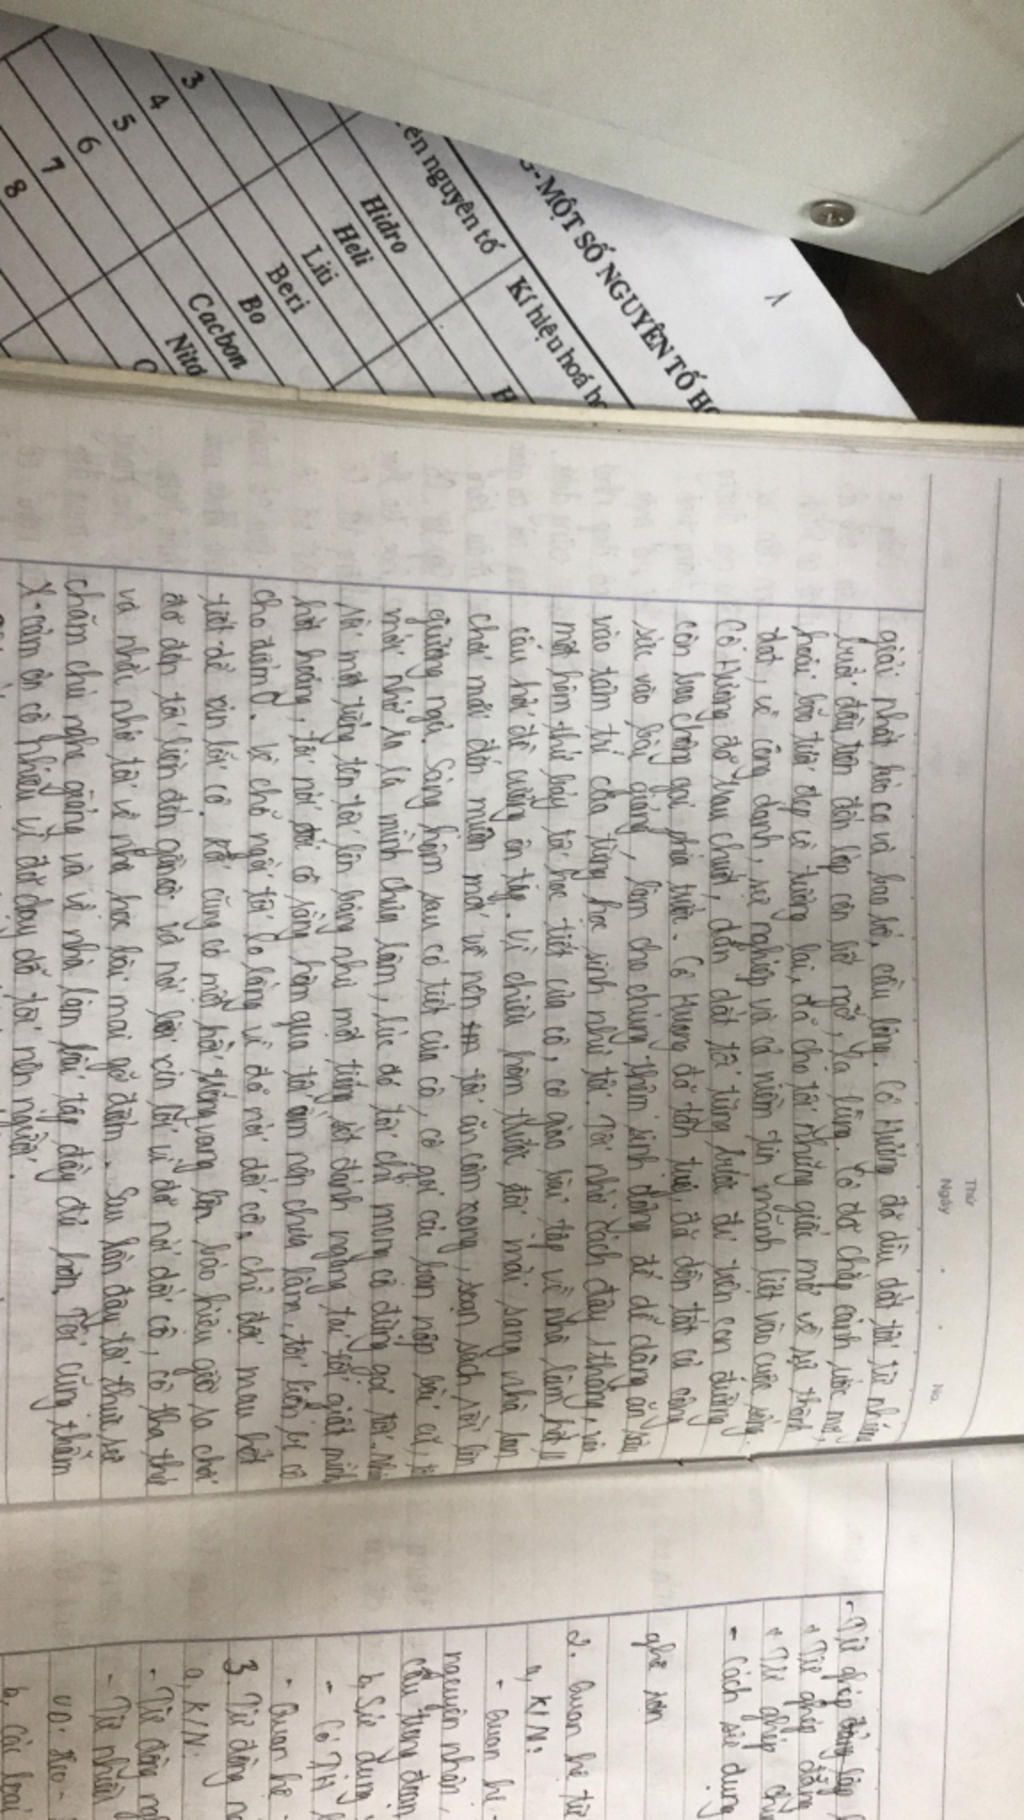 G - MỘT SỐ NGUYÊN TỐ H
ên nguyên tố
Kí hiệu hoá h
Hidro
H
Heli
3
Liti
4
Beri
5
Bo
6
Cacbon
7
Nitơ
8
O
Thứ
Ngày
No.
giải nhất kéo co và cầu lông. Cô Hương đã dìu dắt tôi từ những
bước đầu tiên đến lớp còn bỡ ngỡ, lạ lùng. Cô đã chắp cánh ước mơ,
hoài bão tươi đẹp về tương lai, đã cho tôi những giấc mơ về sự thành
đạt, về công danh, sự nghiệp và cả niềm tin mãnh liệt vào cuộc sống.
Cô Hương đã trau chuốt, dẫn dắt tôi từng bước đi trên con đường
còn bao chông gai phía trước. Cô Hương đã tận tuỵ, đã dồn tất cả công
sức vào bài giảng, làm cho chúng thêm sinh động để dễ dàng ăn sâu
vào tâm trí của từng học sinh như tôi. Tôi nhớ cách đây 1 tháng, vào
một hôm thứ bảy tôi học tiết của cô, cô giao bài tập về nhà làm hết
câu hỏi đề cương ôn tập. Vì chiều hôm trước tôi mải sang nhà bạn
chơi mãi đến muộn mới về nên tôi ăn cơm xong, soạn sách rồi lên
giường ngủ. Sáng hôm sau có tiết của cô, cô gọi các bạn nộp bài cũ, tôi
mới nhớ ra là mình chưa làm, lúc đó tôi chỉ mong cô đừng gọi tôi.
Rồi một tiếng tên tôi lên bảng như một tiếng sét đánh ngang tai tôi giật mình
hốt hoảng, tôi nói dối cô rằng hôm qua tôi ốm nên chưa làm, tôi liền bị cô
cho điểm 0. Về chỗ ngồi tôi lo lắng vì đã nói dối cô, chỉ đợi mau hết
tiết để xin lỗi cô. Rồi cũng có một hồi trống vang lên báo hiệu giờ ra chơi
đã đến tôi liền đến gần cô và nói lời xin lỗi vì đã nói dối cô, cô tha thứ
và nhắc nhở tôi về nhà học bài mai gỡ điểm. Sau lần đấy tôi thực sự
chăm chú nghe giảng và về nhà làm bài tập đầy đủ hơn. Tôi cũng thầm
cảm ơn cô nhiều vì đã dạy dỗ tôi nên người.
- Từ ghép đẳng lập
+ Từ ghép đẳng
+ Từ ghép ch
- Cách sử dụng
ghi sơn
2. Quan hệ từ
a, K/N:
- Quan hệ
nguyên nhân,
câu trong đoạn
b, Sử dụng
- Có TH
- Quan hệ
3. Từ đồng n
a, K/N.
- Từ đồng n
- Từ nhiều
VD:
b, Các loại